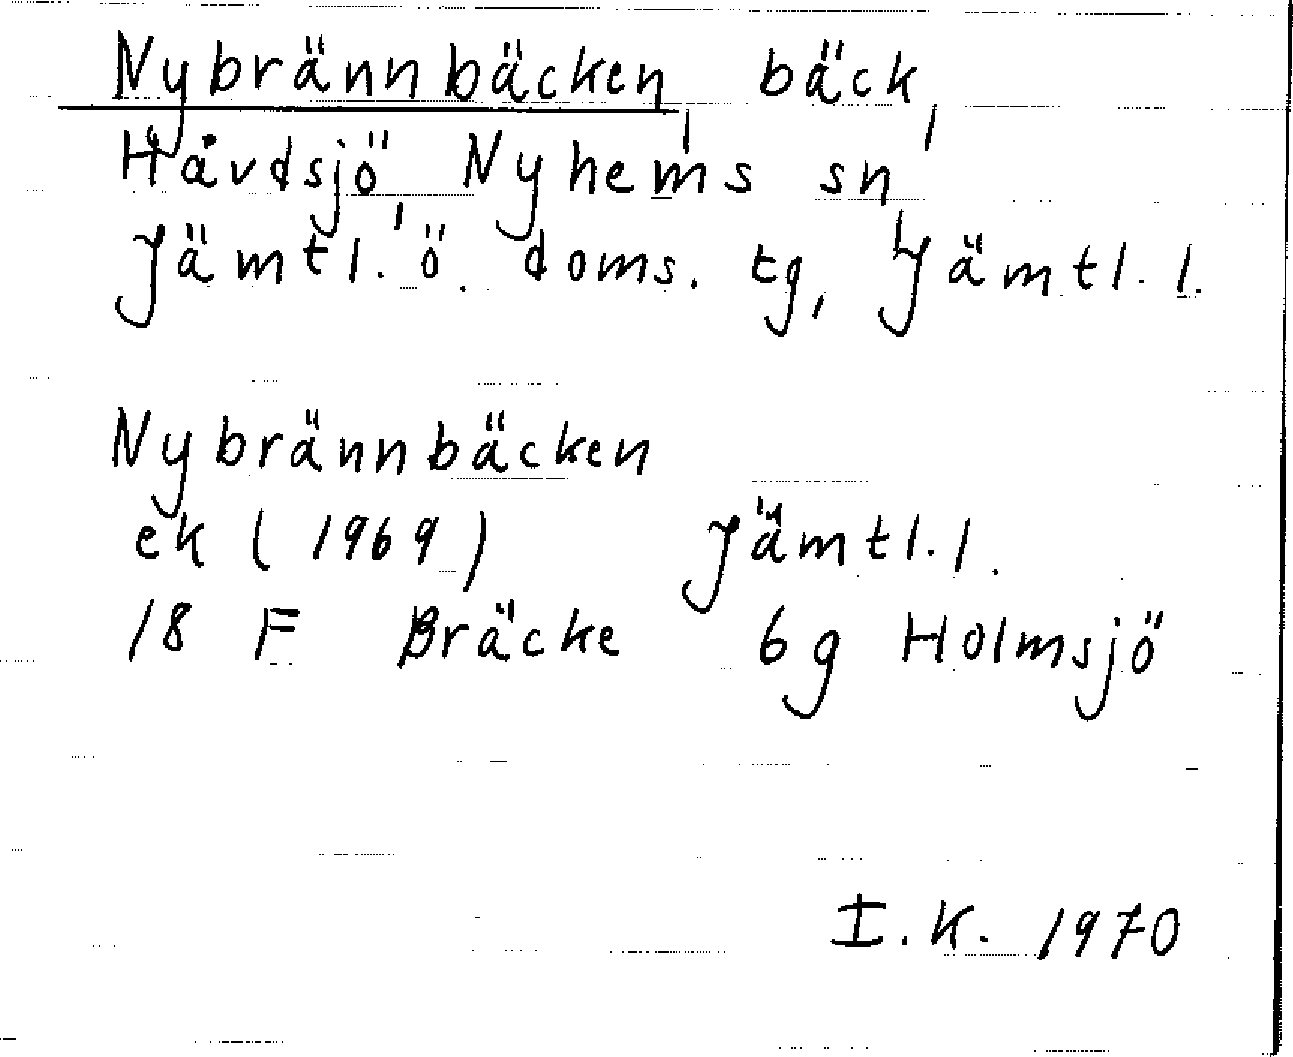 Nybrännbäcken, bäck,
Håvdsjö, Nyhems sn,
Jämtl. ö. doms. tg, Jämtl. l.
Nybrännbäcken
ek (1969) Jämtl. l.
18 F Bräcke 6g Holmsjö
I. K. 1970